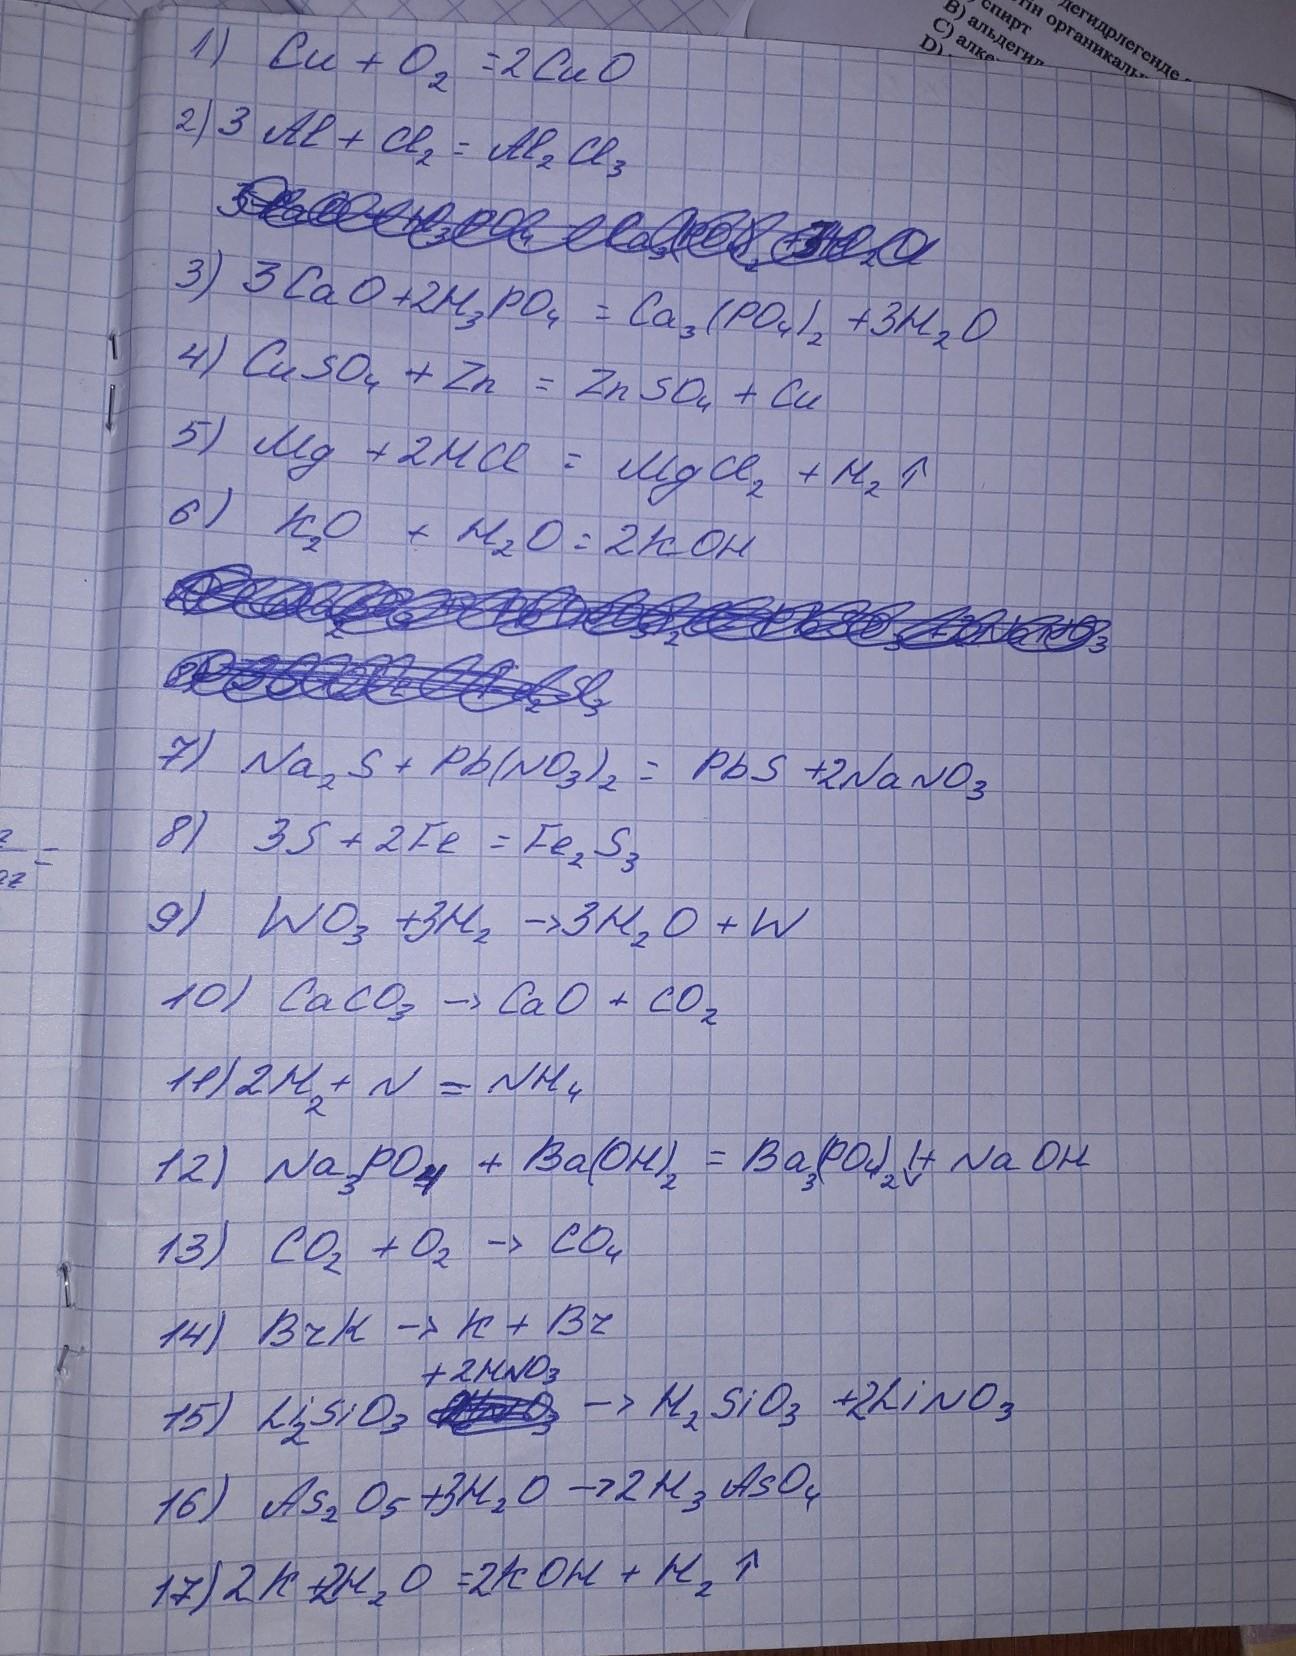 дегидрлегенде
гін органикалы
спирт
B) альдегид
C) алке
D)
1) Cu + O2 = 2CuO
2) 3 Al + Cl2 = Al2Cl3
3) 3CaO + 2H3PO4 = Ca3(PO4)2 + 3H2O
4) CuSO4 + Zn = ZnSO4 + Cu
5) Mg + 2HCl = MgCl2 + H2↑
6) K2O + H2O = 2KOH
7) Na2S + Pb(NO3)2 = PbS + 2NaNO3
8) 3S + 2Fe = Fe2S3
9) WO3 + 3H2 → 3H2O + W
10) CaCO3 → CaO + CO2
11) 2H2 + N = NH4
12) Na3PO4 + Ba(OH)2 = Ba3(PO4)2↓ + NaOH
13) CO2 + O2 → CO4
14) BrK → K + Br
15) Li2SiO3 + 2HNO3 → H2SiO3 + 2LiNO3
16) As2O5 + 3H2O → 2H3AsO4
17) 2K + 2H2O = 2KOH + H2↑